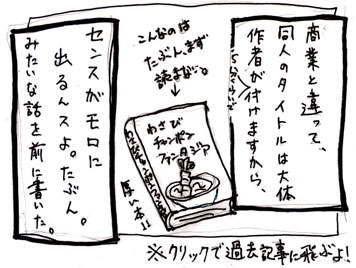 商業と違って、
同人のタイトルは大体
作者が付けますから、
こんなのは
たぶん、まず
読まない。
わさび
チャンポン
ファンタジア
厚い本!!
センスがモロに
出るんスよ。たぶん。
みたいな話を前に書いた。
※クリックで過去記事に飛ぶよ!